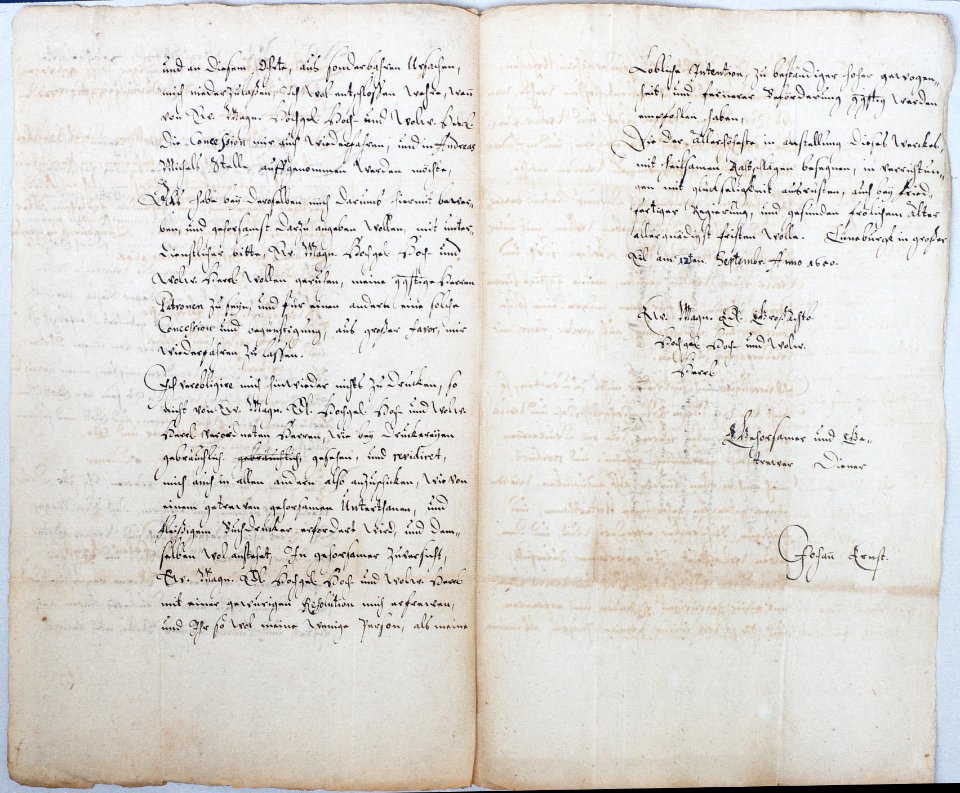 und an diesem Ohrte, aus sonderbahren Ursachen,
mich niederzulaßen, Ich wol entschlossen wehre, wan
von Ew. Magn. Hochgel. Hoch- und Wolw. Herl.
die Concession mir auch wiederfahren, und in Andreas
Michels Stelle auffgenommen werden möchte,
Als habe bey deroselben mich darumb hiermit bewer-
ben, und gehorsambst darzu angeben wollen, mit unter-
dienstlicher bitte, Ew. Magn. Hochgel. Hoch- und
Wolw. Herl. wollen geruhen, meine günstige Herren
Patronen zu seyn, und für einen andern eine solche
Concession und begünstigung, aus großer favor, mir
wiederfahren zu lassen.
Ich verobligire mich hinwieder nichts zu drucken, so
nicht von Ew. Magn. Hochgel. Hoch- und Wolw.
Herl. verordneten Herren, wie bey Druckereyen
gebräuchlich gebräuchlich gesehen, und revidiret,
mich auch in allen andern also anzuschicken, wie von
einem getrewen gehorsamen Unterthanen, und
fleißigem Buchdrucker erfordert wird, und dem-
selben wol anstehet, In gehorsamer Zuversicht,
Ew. Magn. Hochgel. Hoch- und Wolw. Herl.
mit einer gewürigen Resolution mich erfrewen,
und Ihr so wol meine wenige Person, als meine
Löbliche Intention, zu beständiger hoher gewogen-
heit, und fernerer Beforderung günstig werden
empfohlen haben,
Die der Allerhöheste in anstellung dieses Werckes,
mit heilsamen Rahtschlägen besegnen, in verrichtun-
gen mit glückseligkeit ausrüsten, auch bey fried-
fertiger Regierung, und gesunden frölichem Alter
allergnädigst fristen wolle. Lüneburgk in großer
Eil am 12ten Septembr. Anno
Ew. Magn. Großachtb.
Hochgel. Hoch- und Wolw.
Herl.
Gehorsamer und Ge-
trewer Diener
Johan Ernst.